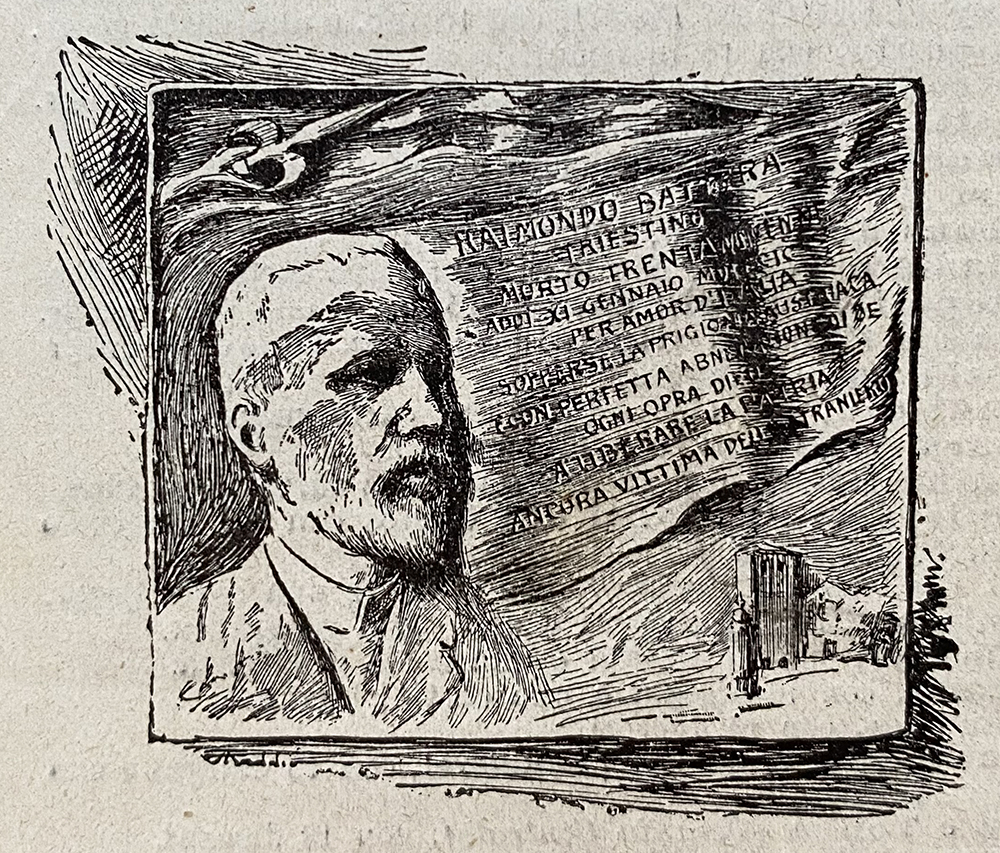 RAIMONDO BATTERA
TRIESTINO
MORTO TRENTANOVENNE
ADDI XI GENNAIO
PER AMOR D'ITALIA
SOFFERSE LA PRIGIONIA AUSTRIACA
E CON PERFETTA ABNEGAZIONE DI SE
OGNI OPRA DIEDE
A LIBERARE LA PATRIA
ANCORA VITTIMA DELLO STRANIERO